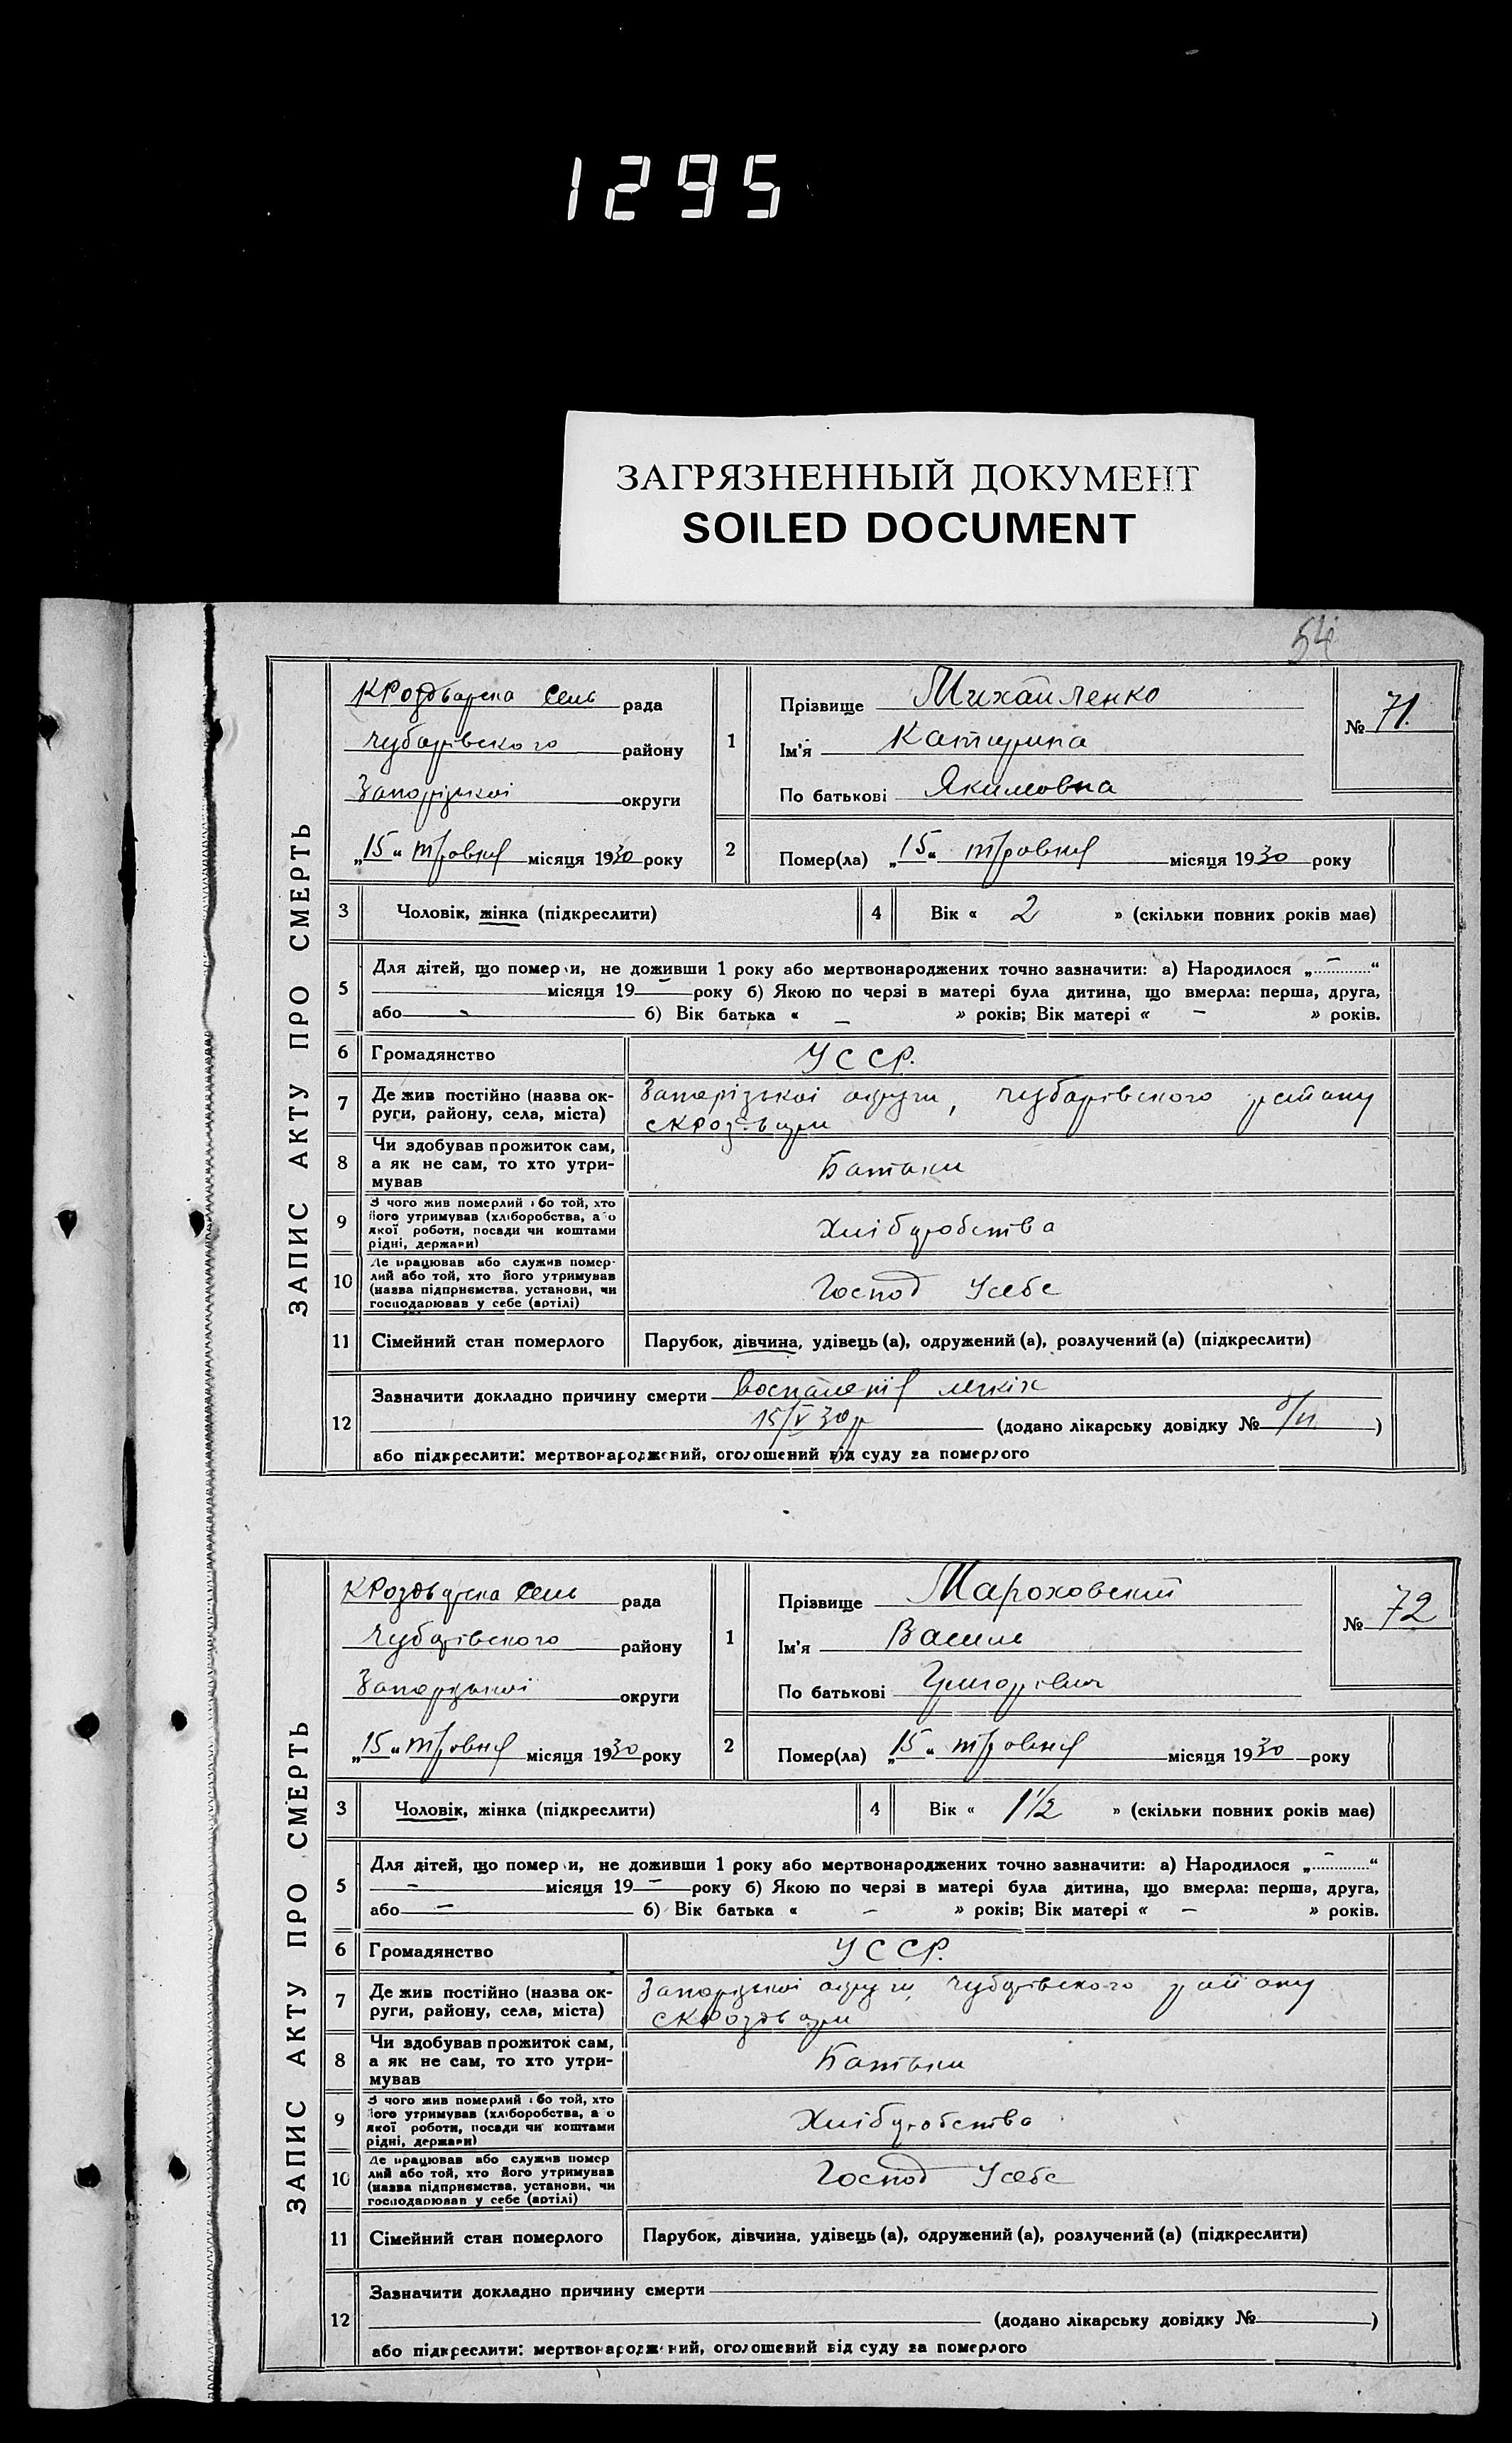 1295
ЗАГРЯЗНЕННЫЙ ДОКУМЕНТ
SOILED DOCUMENT
54
ЗАПИС АКТУ ПРО СМЕРТЬ
сель рада
Чубарівского району
Запорізькоі округи
„15“ травня місяця 1930 року
1
Прізвище Михайленко
Ім'я Катирина
По батькові Якимовна
№ 71.
2
Помер(ла) „15“ травня місяця 1930 року
3 Чоловік, жінка (підкреслити)
4 Вік « 2 » (скільки повних років має)
5 Для дітей, що помер и, не доживши 1 року або мертвонароджених точно зазначити: а) Народилося „ – “
місяця 19 – року б) Якою по черзі в матері була дитина, що вмерла: перша, друга,
або - б) Вік батька « – » років; Вік матері « – » років.
6 Громадянство УССР.
7 Де жив постійно (назва ок-
руги, району, села, міста)
Запорізькоі округи, Чубарівского району
8 Чи здобував прожиток сам,
а як не сам, то хто утри-
мував
Батьки
9 З чого жив померлий або той, хто
його утримував (хліборобства, або
якої роботи, посади чи коштами
рідні, держави)
Хліборобства
10 Де працював або служив помер-
лий або той, хто його утримував
(назва підприємства, установи, чи
господарював у себе (артілі)
Господ Усебе
11 Сімейний стан померлого Парубок, дівчина, удівець (а), одружений (а), розлучений (а) (підкреслити)
12 Зазначити докладно причину смерти воспаленія легкіх
15/V 30 р (додано лікарську довідку № )
або підкреслити: мертвонароджений, оголошений від суду за померлого
ЗАПИС АКТУ ПРО СМЕРТЬ
сель рада
Чубарівского району
Запорізькоі округи
„15“ травня місяця 1930 року
1
Прізвище Мароховский
Ім'я Василь
По батькові Григорівич
№ 72
2
Помер(ла) „15“ травня місяця 1930 року
3 Чоловік, жінка (підкреслити)
4 Вік « 1½ » (скільки повних років має)
5 Для дітей, що помер и, не доживши 1 року або мертвонароджених точно зазначити: а) Народилося „ – “
– місяця 19 – року б) Якою по черзі в матері була дитина, що вмерла: перша, друга,
або – б) Вік батька « – » років; Вік матері « – » років.
6 Громадянство УССР.
7 Де жив постійно (назва ок-
руги, району, села, міста)
Запорізькоі округи Чубарівского району
8 Чи здобував прожиток сам,
а як не сам, то хто утри-
мував
Батьки
9 З чого жив померлий або той, хто
його утримував (хліборобства, або
якої роботи, посади чи коштами
рідні, держави)
Хліборобства
10 Де працював або служив помер
лий або той, хто його утримував
(назва підприємства, установи, чи
господарював у себе (артілі)
Господ Усебе
11 Сімейний стан померлого Парубок, дівчина, удівець (а), одружений (а), розлучений (а) (підкреслити)
12 Зазначити докладно причину смерти
(додано лікарську довідку № )
або підкреслити: мертвонароджений, оголошений від суду за померлого